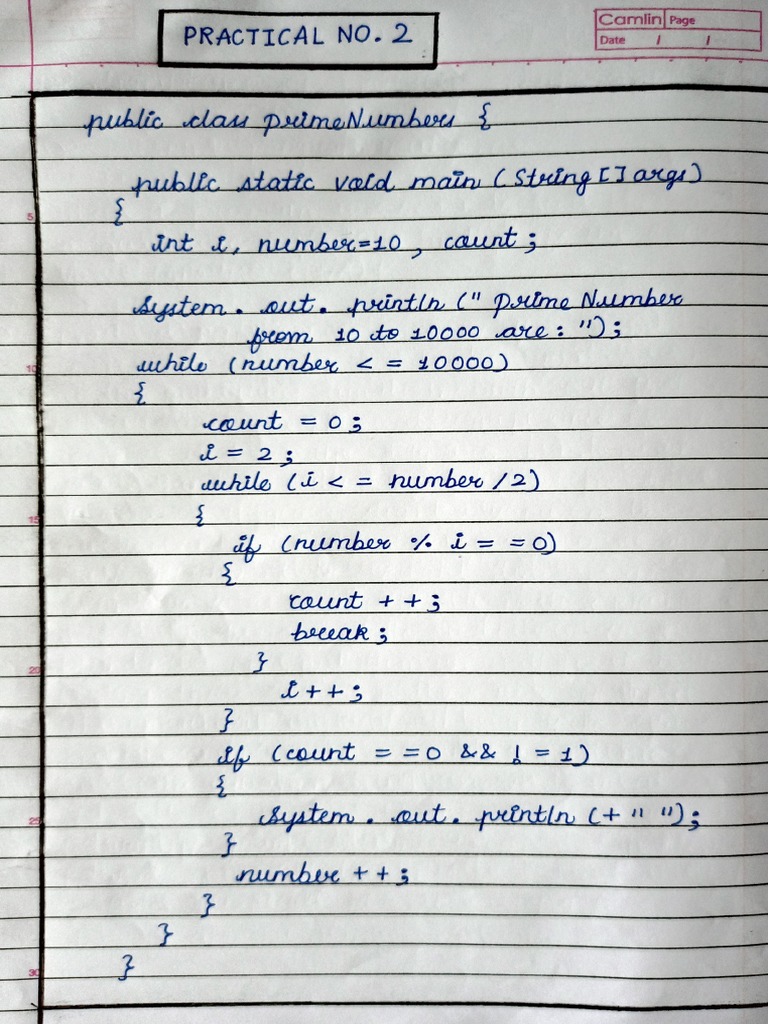 PRACTICAL NO. 2
Camlin Page
Date / /
public class primeNumbers {
public static void main (String [] args)
5
{
int i, number=10, count;
System. out. println (" prime Number
from 10 to 10000 are: ");
10
while (number < = 10000)
{
count = 0;
i = 2;
while (i < = number /2)
15
{
if (number % i = = 0)
{
count ++;
break;
20
}
i ++;
}
if (count = = 0 && ! = 1)
{
25
System. out. println (+ " ");
}
number ++;
}
}
30
}